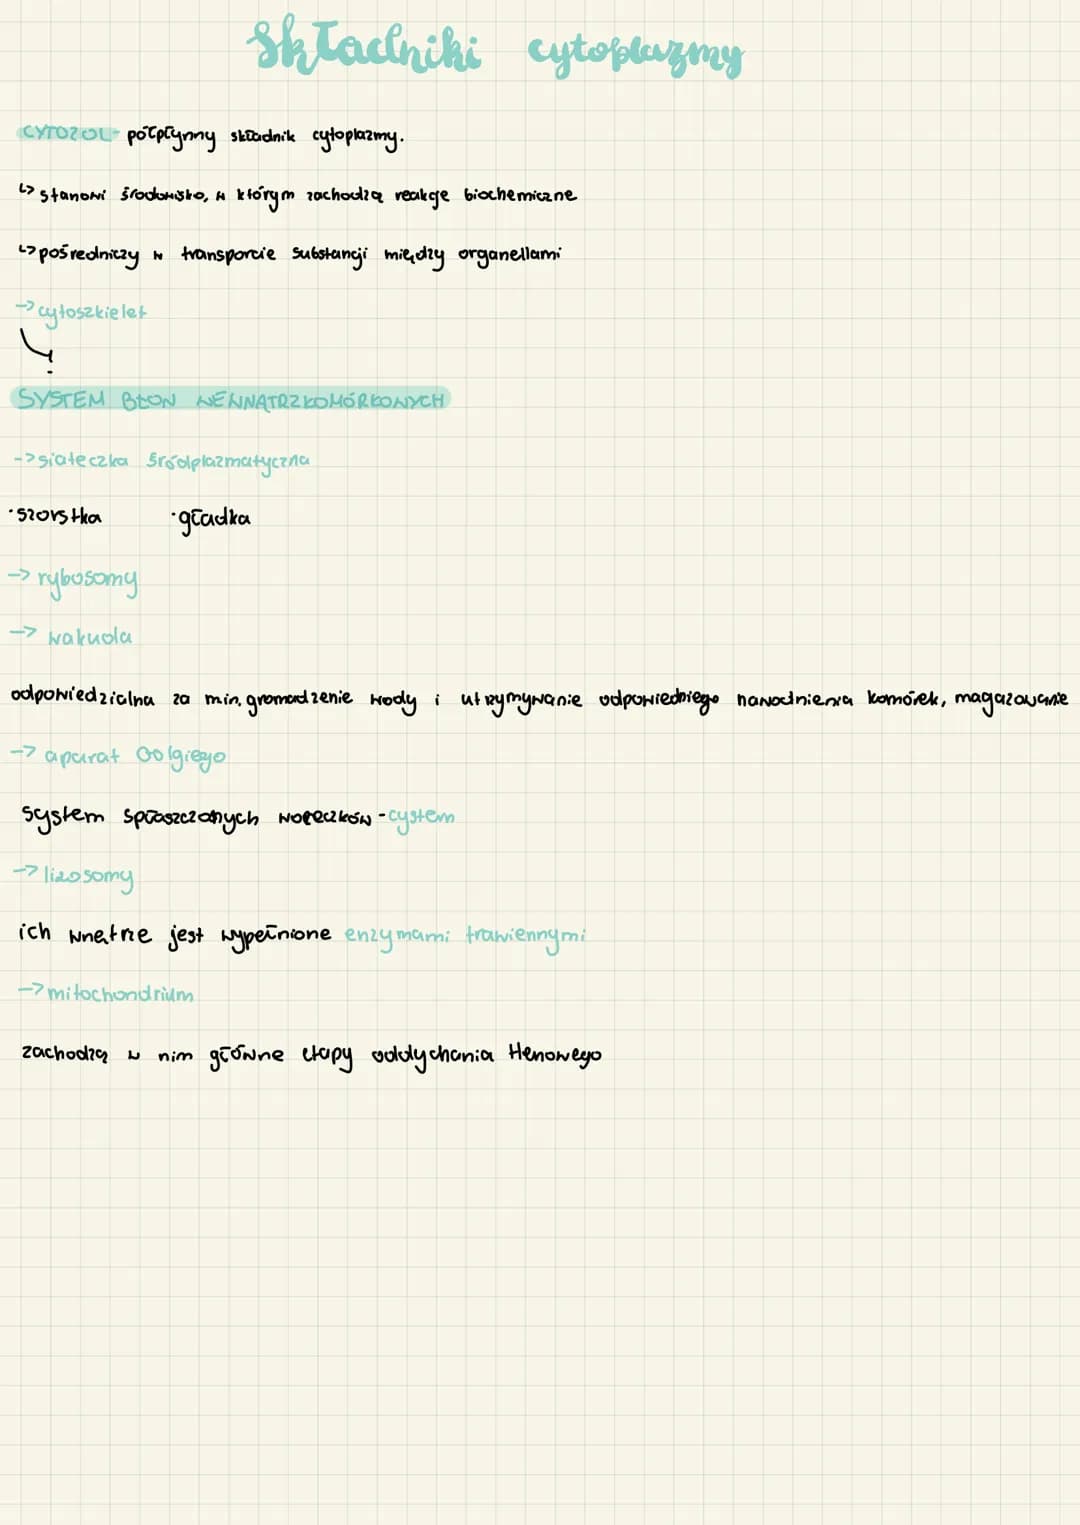 Składniki cytoplazmy
CYTOZOL - półpłynny składnik cytoplazmy.
↳ stanowi środowisko, w którym zachodzą reakcje biochemiczne
↳ pośredniczy w transporcie substancji między organellami
-> cytoszkielet
SYSTEM BŁON WEWNĄTRZKOMÓRKOWYCH
-> siateczka śródplazmatyczna
· szorstka · gładka
-> rybosomy
-> wakuola
odpowiedzialna za min. gromadzenie wody i utrzymywanie odpowiedniego nawodnienia komórek, magazowanie
-> aparat Golgiego
system spłaszczonych woreczków - cystern
-> lizosomy
ich wnętrze jest wypełnione enzymami trawiennymi
-> mitochondrium
zachodzą w nim główne etapy oddychania tlenowego